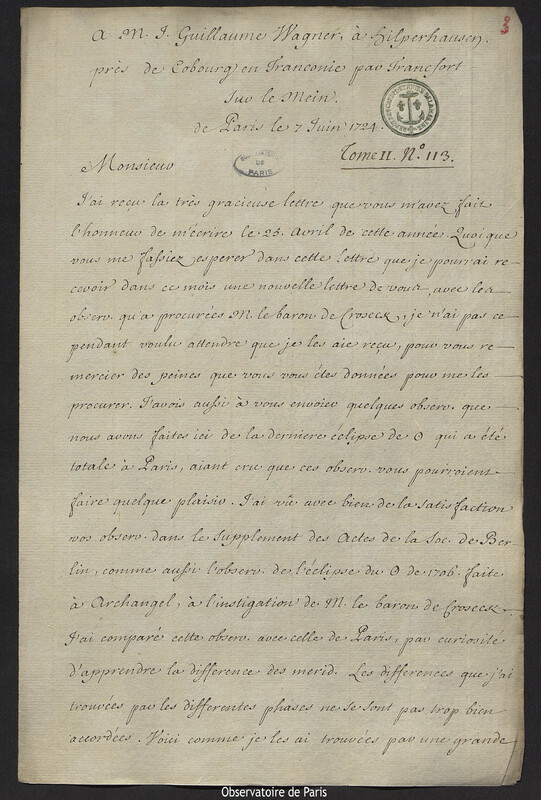 3
A M. J. Guillaume Wagner, à Hilperhausen,
près de Cobourg en Franconie par Francfort
sur le Mein.
de Paris le 7 Juin 1724.
Tome II. N.° 113.
DE
PARIS
Monsieur
J'ai reçu la très gracieuse lettre que vous m'avez fait
l'honneur de m'écrire le 25. Avril de cette année. Quoique
vous me fassiez esperer dans cette lettre que je pourrai re-
cevoir dans ce mois une nouvelle lettre de vous, avec les
observ. qu'a procurées M. le baron de Croseck, je n'ai pas ce-
pendant voulu attendre que je les aie reçu, pour vous re-
mercier des peines que vous vous étes données pour me les
procurer. J'avois aussi à vous envoier quelques observ. que
nous avons faites ici de la derniere éclipse de ☉ qui a été
totale à Paris, aiant cru que ces observ. vous pourroient
faire quelque plaisir. J'ai vû avec bien de la satisfaction
vos observ. dans le supplement des Actes de la Soc. de Ber-
lin, comme aussi l'observ. de l'éclipse du ☉ de 1706. faite
à Archangel, à l'instigation de M. le baron de Croseck.
J'ai comparé cette observ. avec celle de Paris, par curiosité
d'apprendre la difference des merid. Les differences que j'ai
trouvées par les differentes phases ne se sont pas trop bien
accordées. Voici comme je les ai trouvées par une grande
Observatoire de Paris